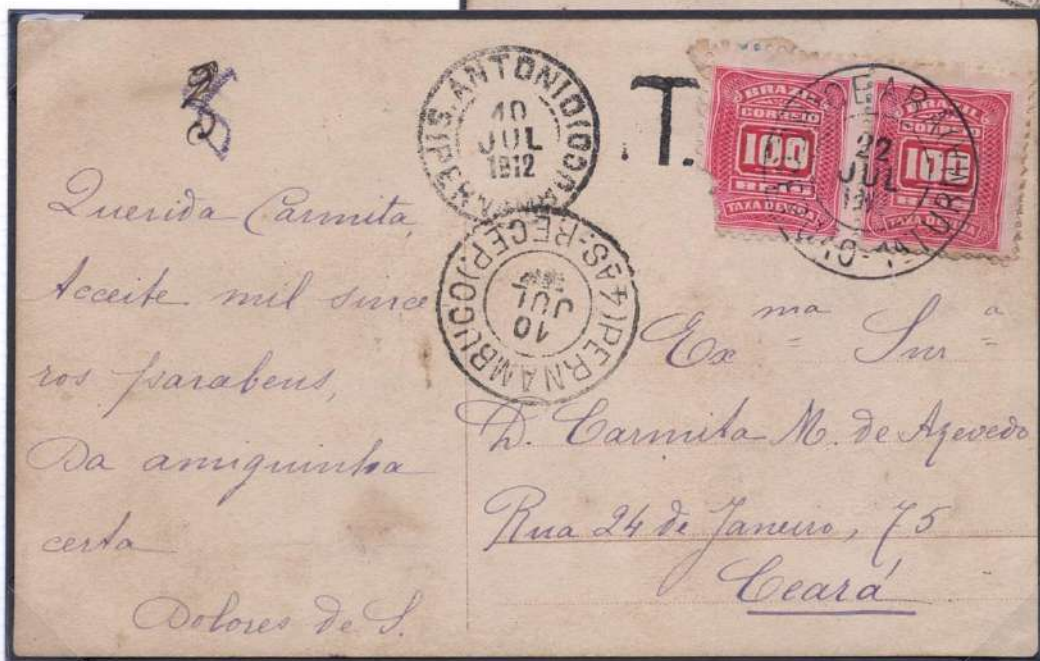 Querida Carmita,
Acceite mil since
ros parabens,
Da amiguinha
certa
Dolores de S.
S. ANTONIO
10
JUL
1912
(4ªS-RECEP.) PERNAMBUCO
10
JUL
T.
BRAZIL
CORREIO
100
REIS
TAXA DEVIDA
BRAZIL
CORREIO
100
REIS
TAXA DEVIDA
CEARÁ
22
JUL
Exma Snra
D. Carmita M. de Azevedo
Rua 24 de Janeiro, 75
Ceará